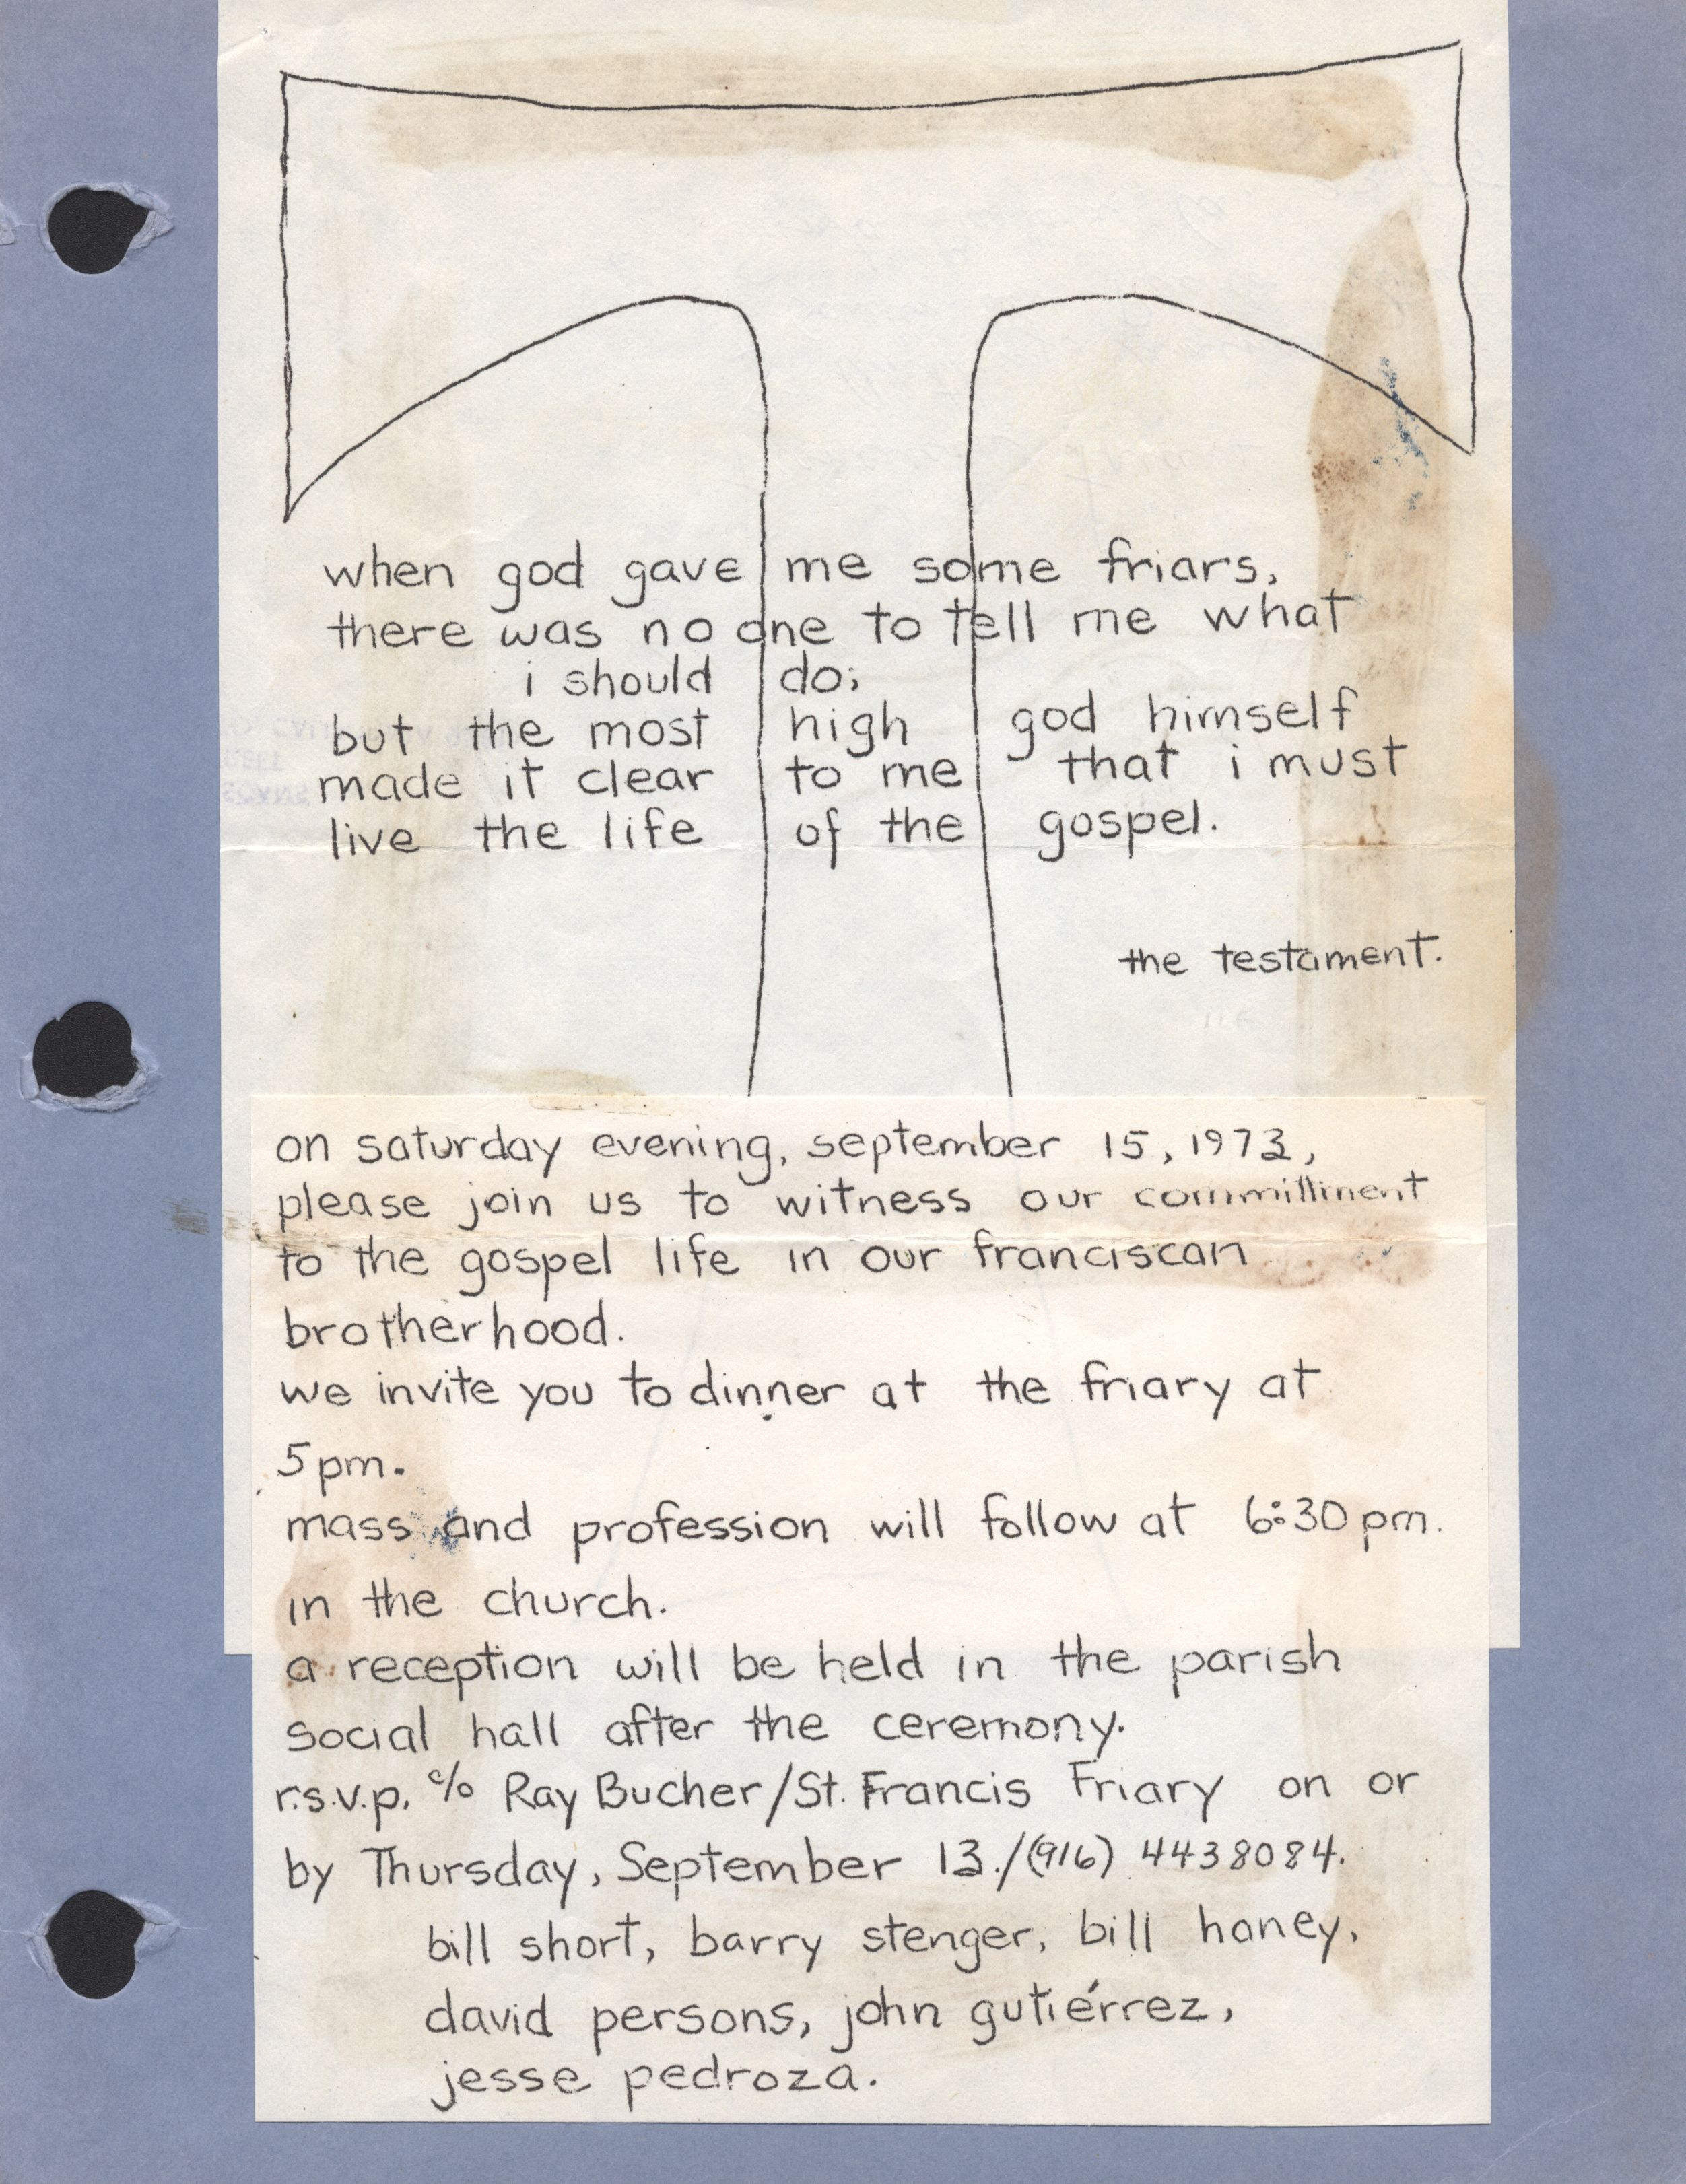 when god gave me some friars,
there was no one to tell me what
i should do;
but the most high god himself
made it clear to me that i must
live the life of the gospel.
the testament.
on saturday evening, september 15, 1973,
please join us to witness our committment
to the gospel life in our franciscan
brotherhood.
we invite you to dinner at the friary at
5pm.
mass and profession will follow at 6:30pm.
in the church.
a reception will be held in the parish
social hall after the ceremony.
r.s.v.p. c/o Ray Bucher/St. Francis Friary on or
by Thursday, September 13./(916) 4438084.
bill short, barry stenger, bill haney,
david persons, john gutiérrez,
jesse pedroza.